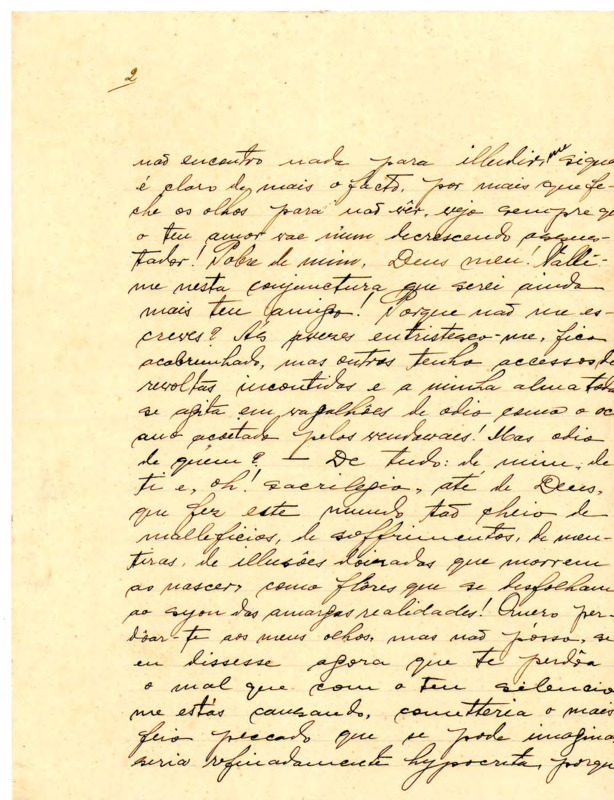 2
não encontro nada para illudir, me siquer
é claro de mais o facto, por mais que fe-
che os olhos para não vêr, vejo sempre que
o teu amor vae n'um decrescendo assus-
tador! Pobre de mim, Deus meu! Valli-
me nesta conjunctura que serei ainda
mais teu amigo! Porque não me es-
creves? Ás vezes entristeço-me, fico
acabrunhado, mas outras tenho accessos de
revoltas incontidas e a minha alma toda
se agita em vagalhões de odio como o oce
ano açoitado pelos vendavaes! Mas odio
de quem? — De tudo: de mim, de
ti e, oh! sacrilegio, até de Deus,
que fez este mundo tão cheio de
malleficios, de soffrimentos, de men-
tiras, de illusões doiradas que morrem
ao nascer, como flores que se desfolham
ao das amargas realidades! Quero per-
dôar-te aos meus olhos, mas não pósso, se
eu dissesse agora que te perdôo
o mal que com o teu silencio
me estás causando, cometteria o mais
feio peccado que se pode imaginar
seria refinadamente hypocrita, porque